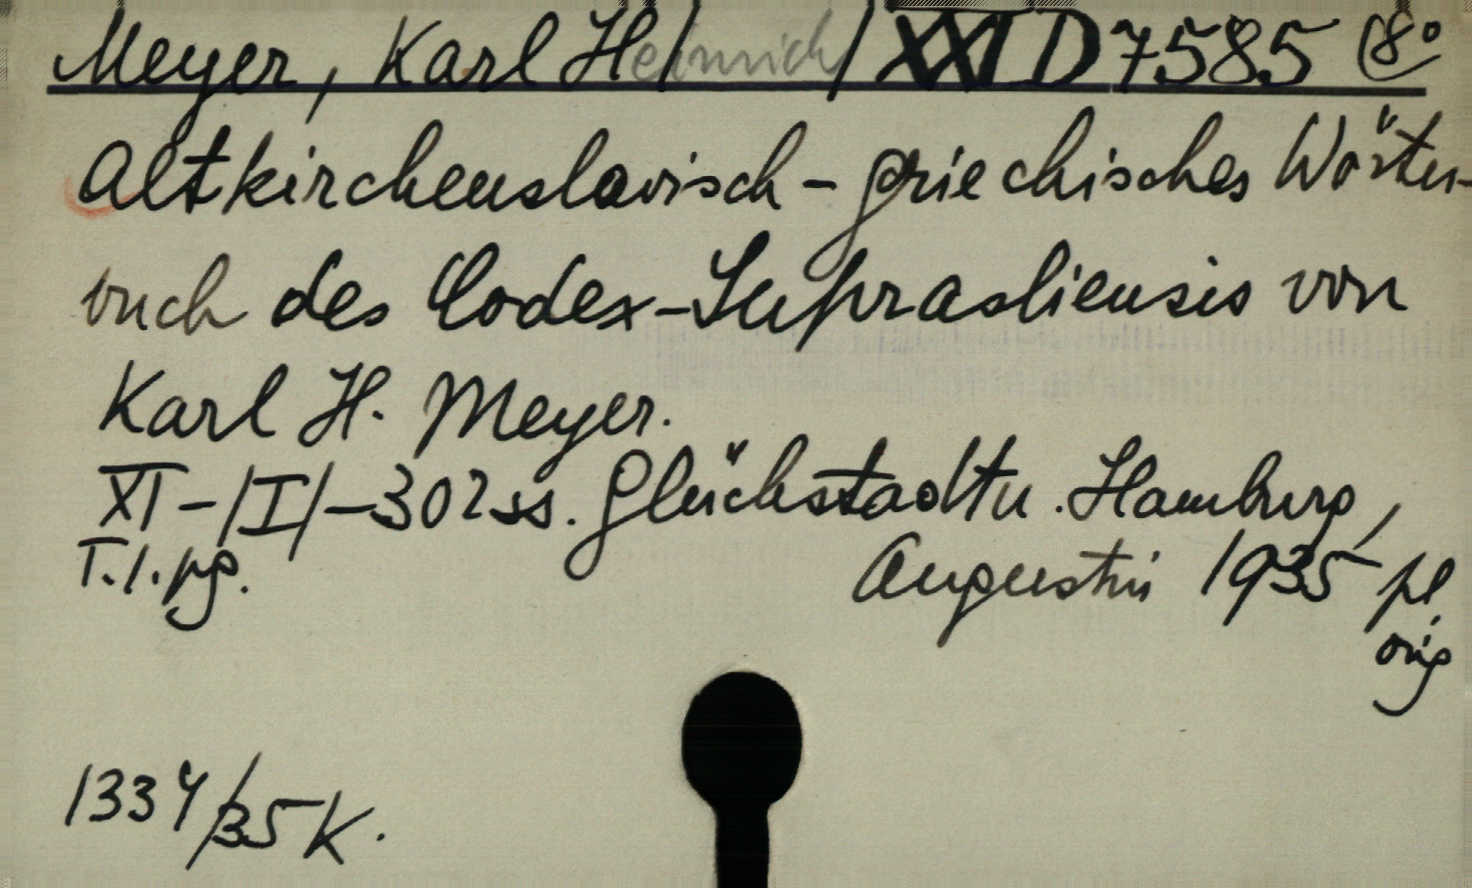 Meyer, Karl H/einrich/ XXI D 7585 (8°
Altkirchenslavisch-griechisches Wörter-
buch des Codex-Suprasliensis von
Karl H. Meyer.
XI-/I/-302 ss. Glückstadt u. Hamburg,
T.1.pg. Augustin 1935 pl.
orig
1334/35 K.